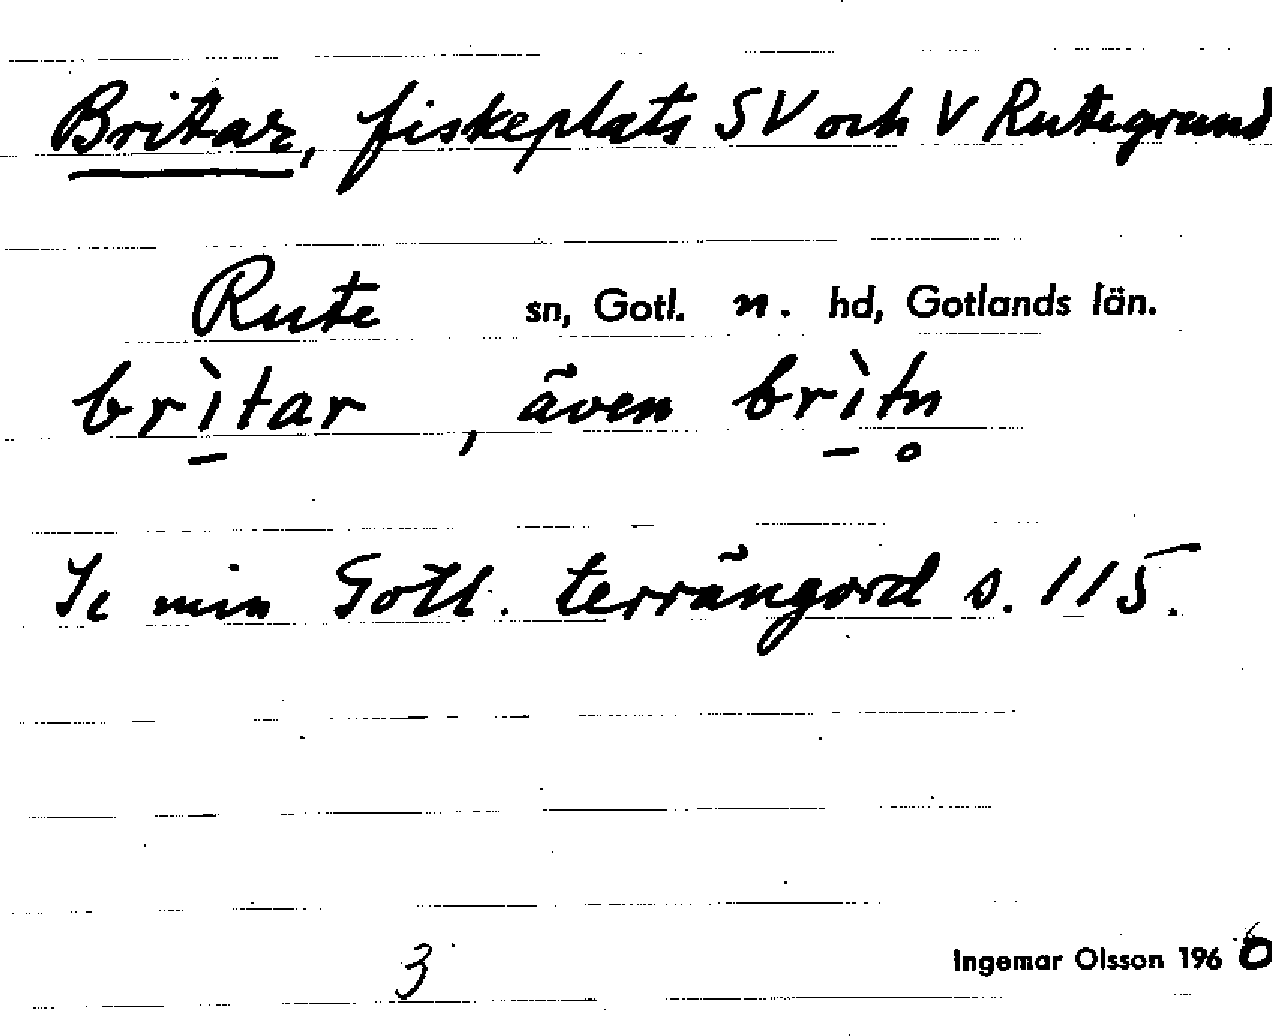 Britar, fiskeplats SV och V Rutegrund
Rute sn, Gotl. n. hd, Gotlands län.
brì̱tar, även brì̱tn̥
Se min Gotl. terrängord s. 115.
3
Ingemar Olsson 1966